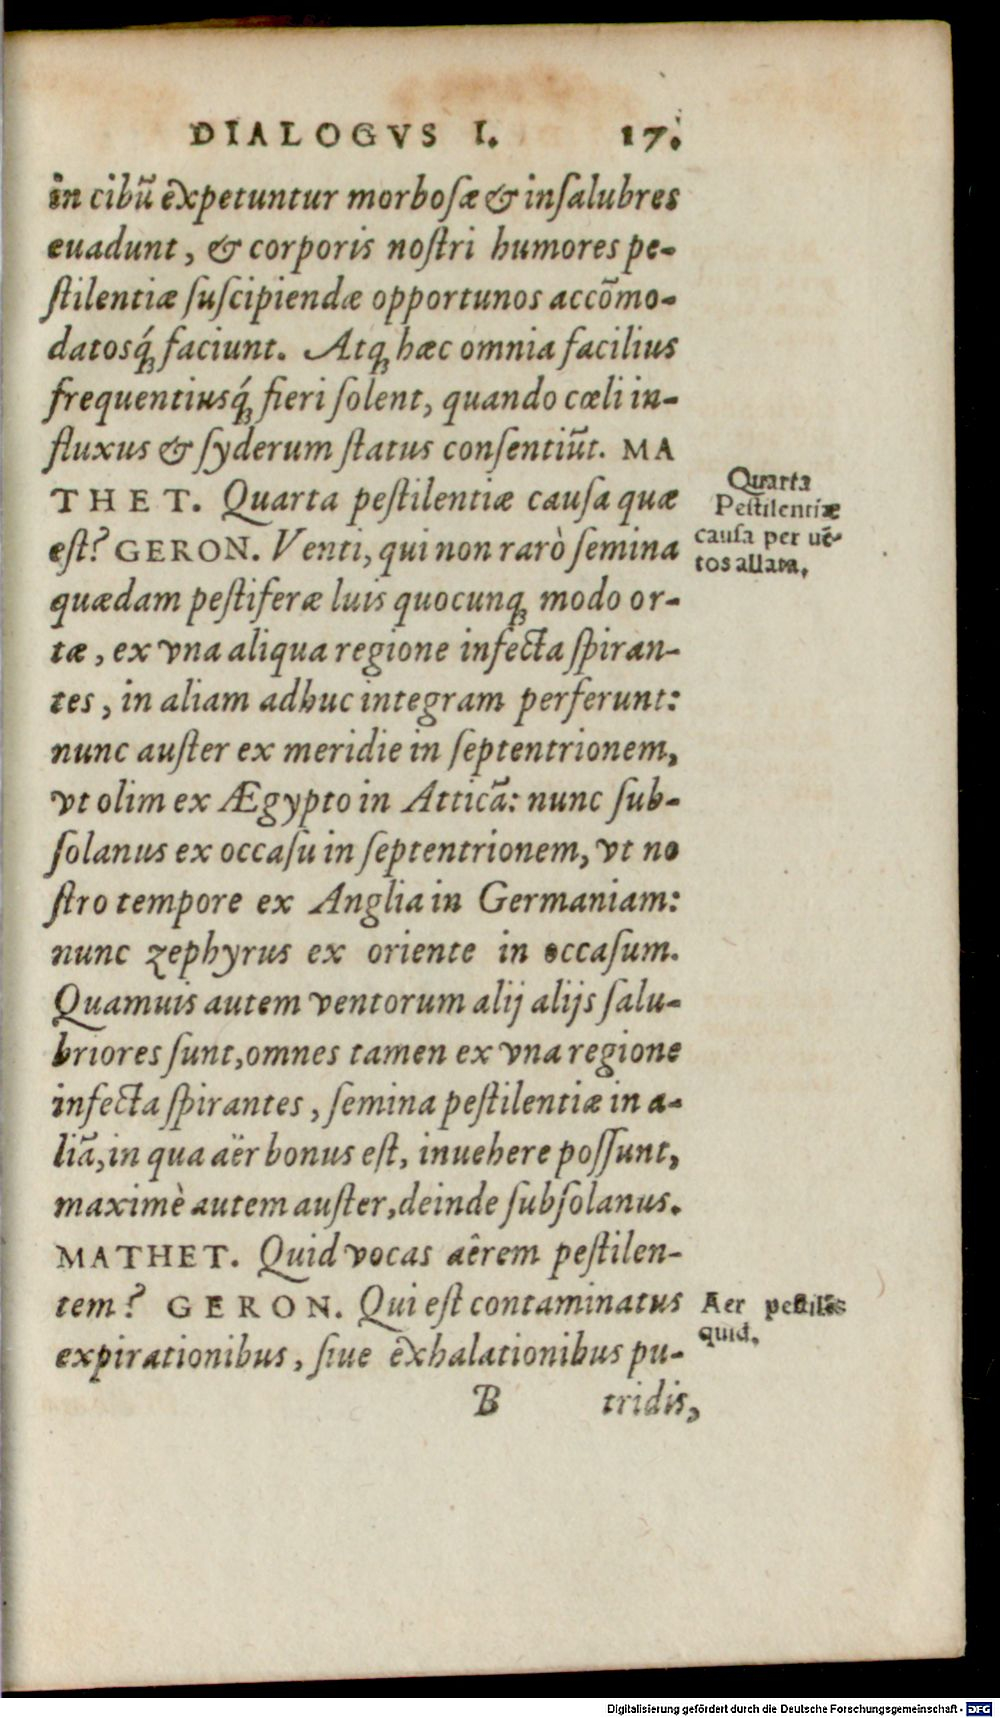 DIALOGVS I. 17.
in cibū expetuntur morbosæ & insalubres
euadunt, & corporis nostri humores pe-
stilentiæ suscipiendæ opportunos accōmo-
datosq́; faciunt. Atq; hæc omnia facilius
frequentiusq́; fieri solent, quando cœli in-
fluxus & syderum status consentiūt. MA
THET. Quarta pestilentiæ causa quæ
est? GERON. Venti, qui non rarò semina
quædam pestiferæ luis quocunq; modo or-
tæ, ex vna aliqua regione infecta spiran-
tes, in aliam adhuc integram perferunt:
nunc auster ex meridie in septentrionem,
vt olim ex Ægypto in Atticā: nunc sub-
solanus ex occasu in septentrionem, vt no
stro tempore ex Anglia in Germaniam:
nunc zephyrus ex oriente in occasum.
Quamuis autem ventorum alij alijs salu-
briores sunt, omnes tamen ex vna regione
infecta spirantes, semina pestilentiæ in a-
liā, in qua aër bonus est, inuehere possunt,
maximè autem auster, deinde subsolanus.
MATHET. Quid vocas aêrem pestilen-
tem? GERON. Qui est contaminatus
expirationibus, siue exhalationibus pu-
B tridis,
Quarta
Pestilentiæ
causa per uē-
tos allata.
Aer pestilēs
quid.
Digitalisierung gefördert durch die Deutsche Forschungsgemeinschaft - DFG